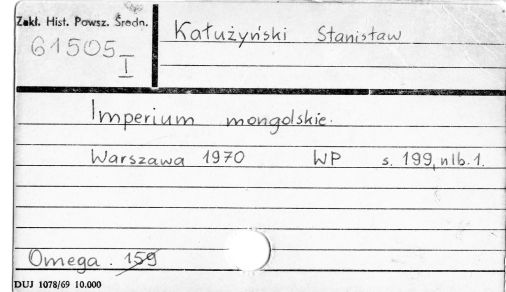 Zakł. Hist. Powsz. Średn.
61505
I
Kałużyński Stanisław
Imperium mongolskie.
Warszawa 1970 WP s. 199, nlb. 1.
Omega. 159
DUJ 1078/69 10.000